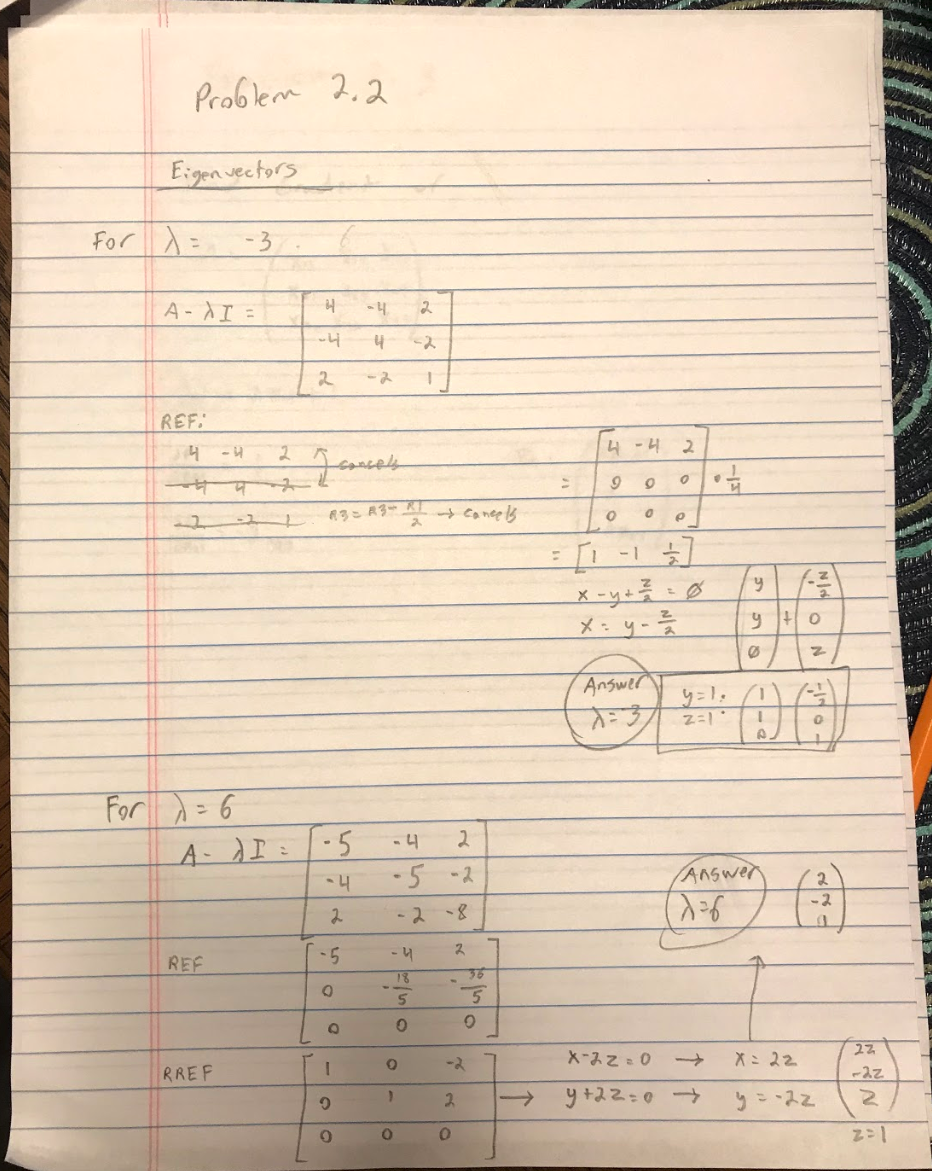 Problem 2.2
Eigenvectors
For λ = -3
A - λI = [ 4 -4 2
-4 4 -2
2 -2 1 ]
REF:
4 -4 2
-4 4 -2 cancels
2 -2 1 R3 = R3 - R1/2 → cancels
= [ 4 -4 2
0 0 0
0 0 0 ] · 1/4
= [ 1 -1 1/2 ]
x - y + z/2 = Ø
x = y - z/2
( y y Ø ) + ( -z/2 0 z )
Answer
λ = -3
y = 1, z = 1: ( 1 1 0 ) ( -1/2 0 1 )
For λ = 6
A - λI = [ -5 -4 2
-4 -5 -2
2 -2 -8 ]
Answer
λ = 6
( 2 -2 1 )
REF [ -5 -4 2
0 -18/5 -36/5
0 0 0 ]
RREF [ 1 0 -2
0 1 2
0 0 0 ]
→ x - 2z = 0 → x = 2z
y + 2z = 0 → y = -2z
( 2z -2z z )
z = 1